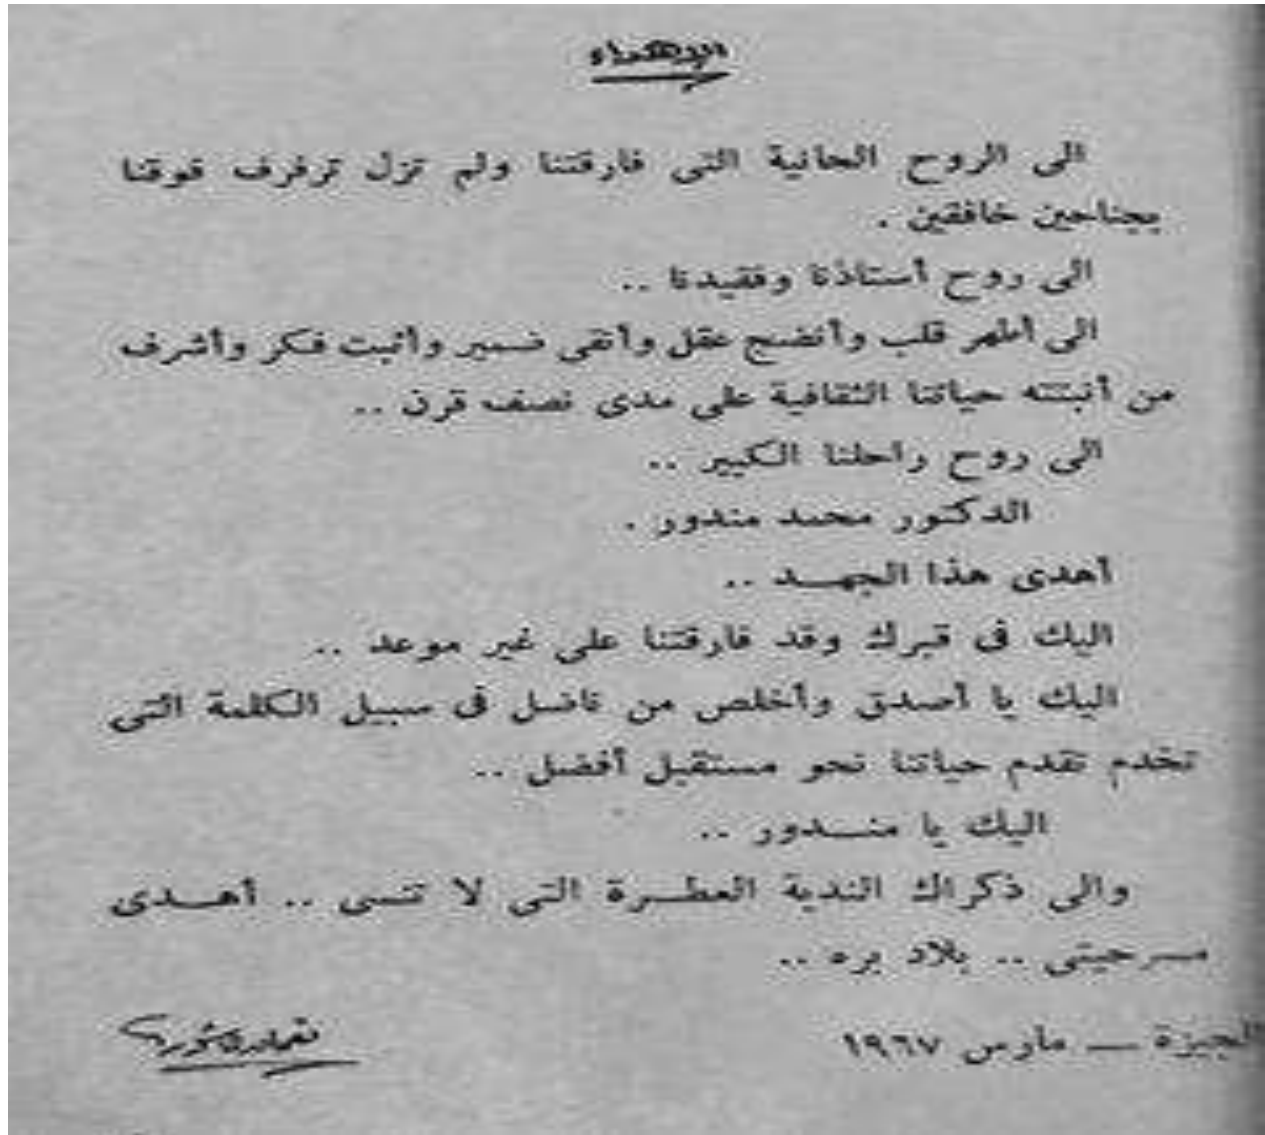 الإهداء
الى الروح الحانية التى فارقتنا ولم تزل ترفرف فوقنا
بجناحين خافقين .
الى روح أستاذنا وفقيدنا ..
الى أطهر قلب وأنضج عقل وأنقى ضمير وأثبت فكر وأشرف
من أنبتته حياتنا الثقافية على مدى نصف قرن ..
الى روح راحلنا الكبير ..
الدكتور محمد مندور .
أهدى هذا الجهـد ..
اليك فى قبرك وقد فارقتنا على غير موعد ..
اليك يا أصدق وأخلص من ناضل فى سبيل الكلمة التى
تخدم تقدم حياتنا نحو مستقبل أفضل ..
اليك يا منـدور ..
والى ذكراك الندية العطـرة التى لا تنسى .. أهـدى
مسرحيتى .. بلاد بره ..
الجيزة — مارس ١٩٦٧
نعمان عاشور